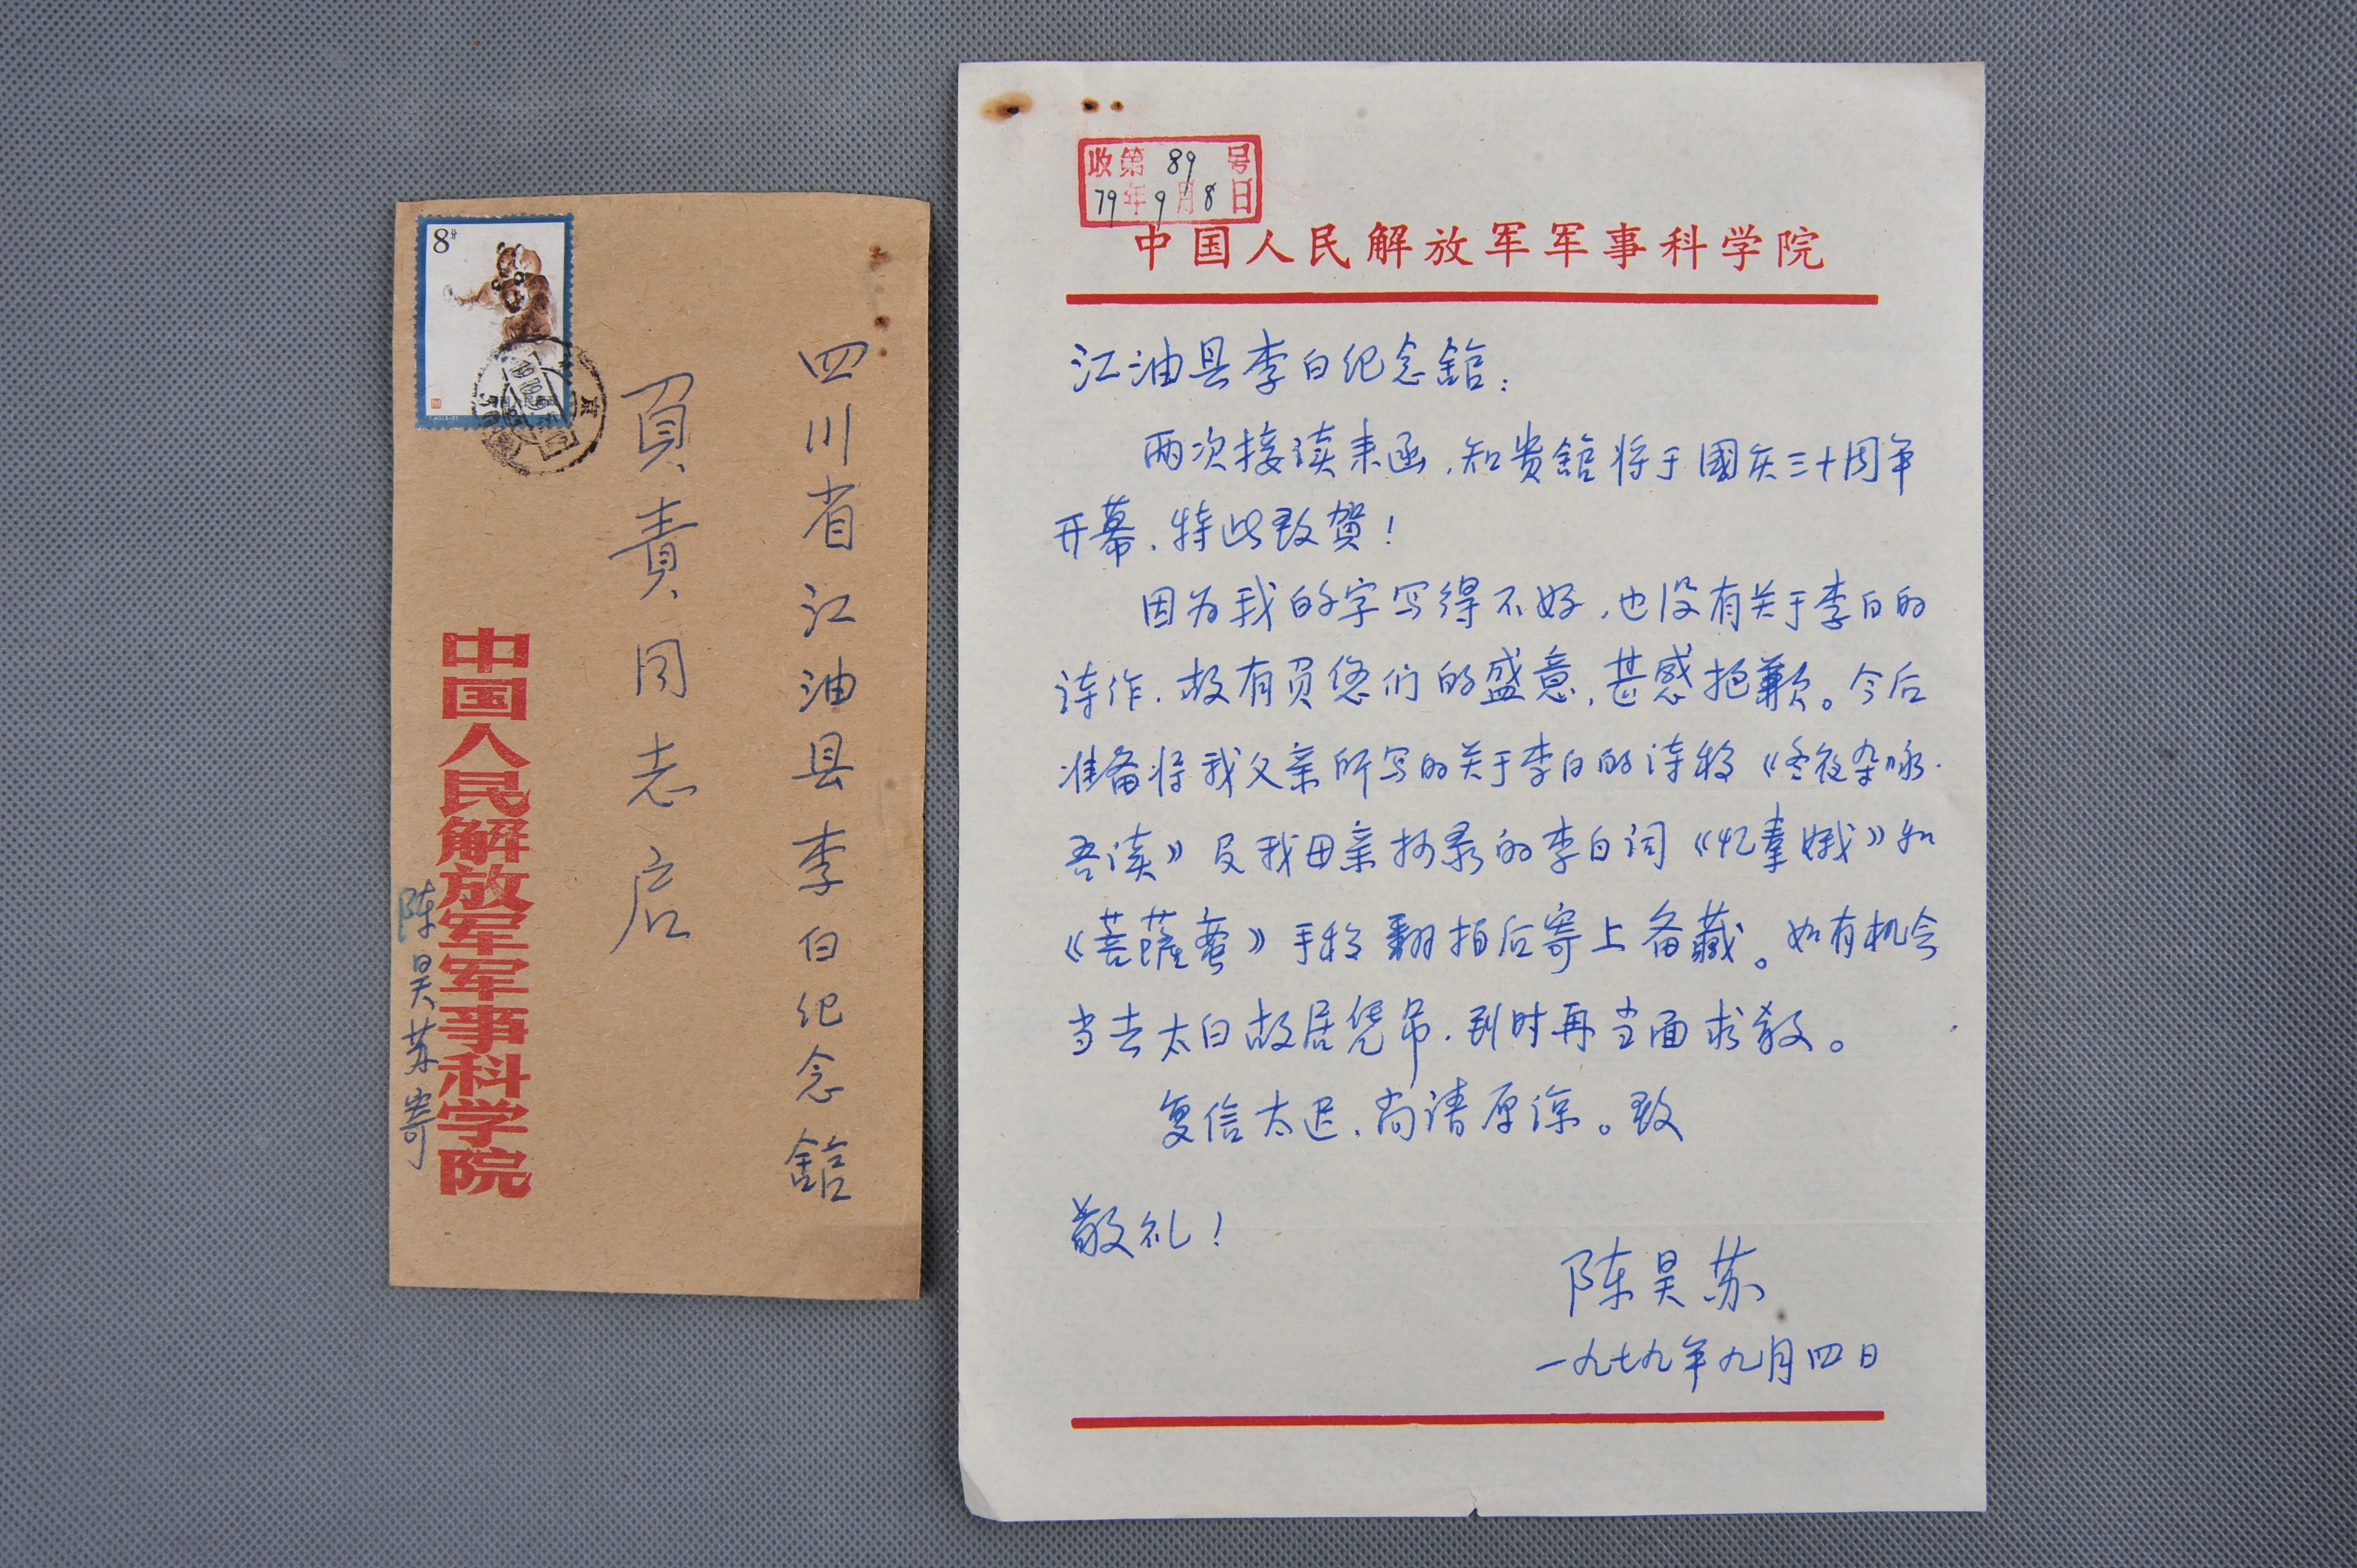 8分
四川省江油县李白纪念舘
負責同志启
中国人民解放军军事科学院
陈昊苏寄
收第89号
79年9月8日
中国人民解放军军事科学院
江油县李白纪念舘：
两次接读来函，知贵舘将于國庆三十周年
开幕，特此致贺！
因为我的字写得不好，也没有关于李白的
诗作，故有负您们的盛意，甚感抱歉。今后
准备将我父亲所写的关于李白的诗稿《冬夜杂咏·
吾读》及我母亲抄录的李白词《忆秦娥》和
《菩薩蛮》手稿翻拍后寄上备藏。如有机会
当去太白故居凭吊，到时再当面求教。
复信太迟，尚请原谅。致
敬礼！
陈昊苏
一九七九年九月四日